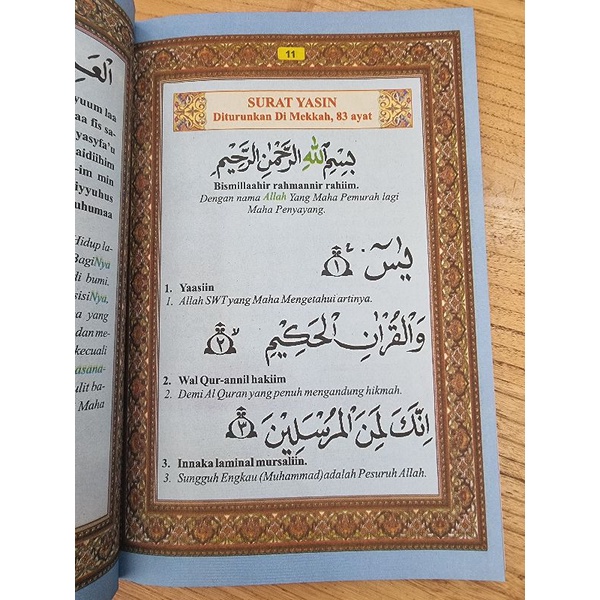 11
SURAT YASIN
Diturunkan Di Mekkah, 83 ayat
بِسْمِ اللهِ الرَّحْمٰنِ الرَّحِيْمِ
Bismillaahir rahmannir rahiim.
Dengan nama Allah Yang Maha Pemurah lagi
Maha Penyayang.
يٰسۤ ۚ ١
1. Yaasiin
1. Allah SWT yang Maha Mengetahui artinya.
وَالْقُرْاٰنِ الْحَكِيْمِ ۙ ٢
2. Wal Qur-annil hakiim
2. Demi Al Quran yang penuh mengandung hikmah.
اِنَّكَ لَمِنَ الْمُرْسَلِيْنَ ٣
3. Innaka laminal mursaliin.
3. Sungguh Engkau (Muhammad) adalah Pesuruh Allah.
yuum laa
aa fis sa-
yasyfa'u
aidiihim
-im min
iyyuhus
uhumaa
Hidup la-
BagiNya
di bumi.
sisiNya.
a yang
dan me-
kecuali
asana-
ulit ba-
Maha